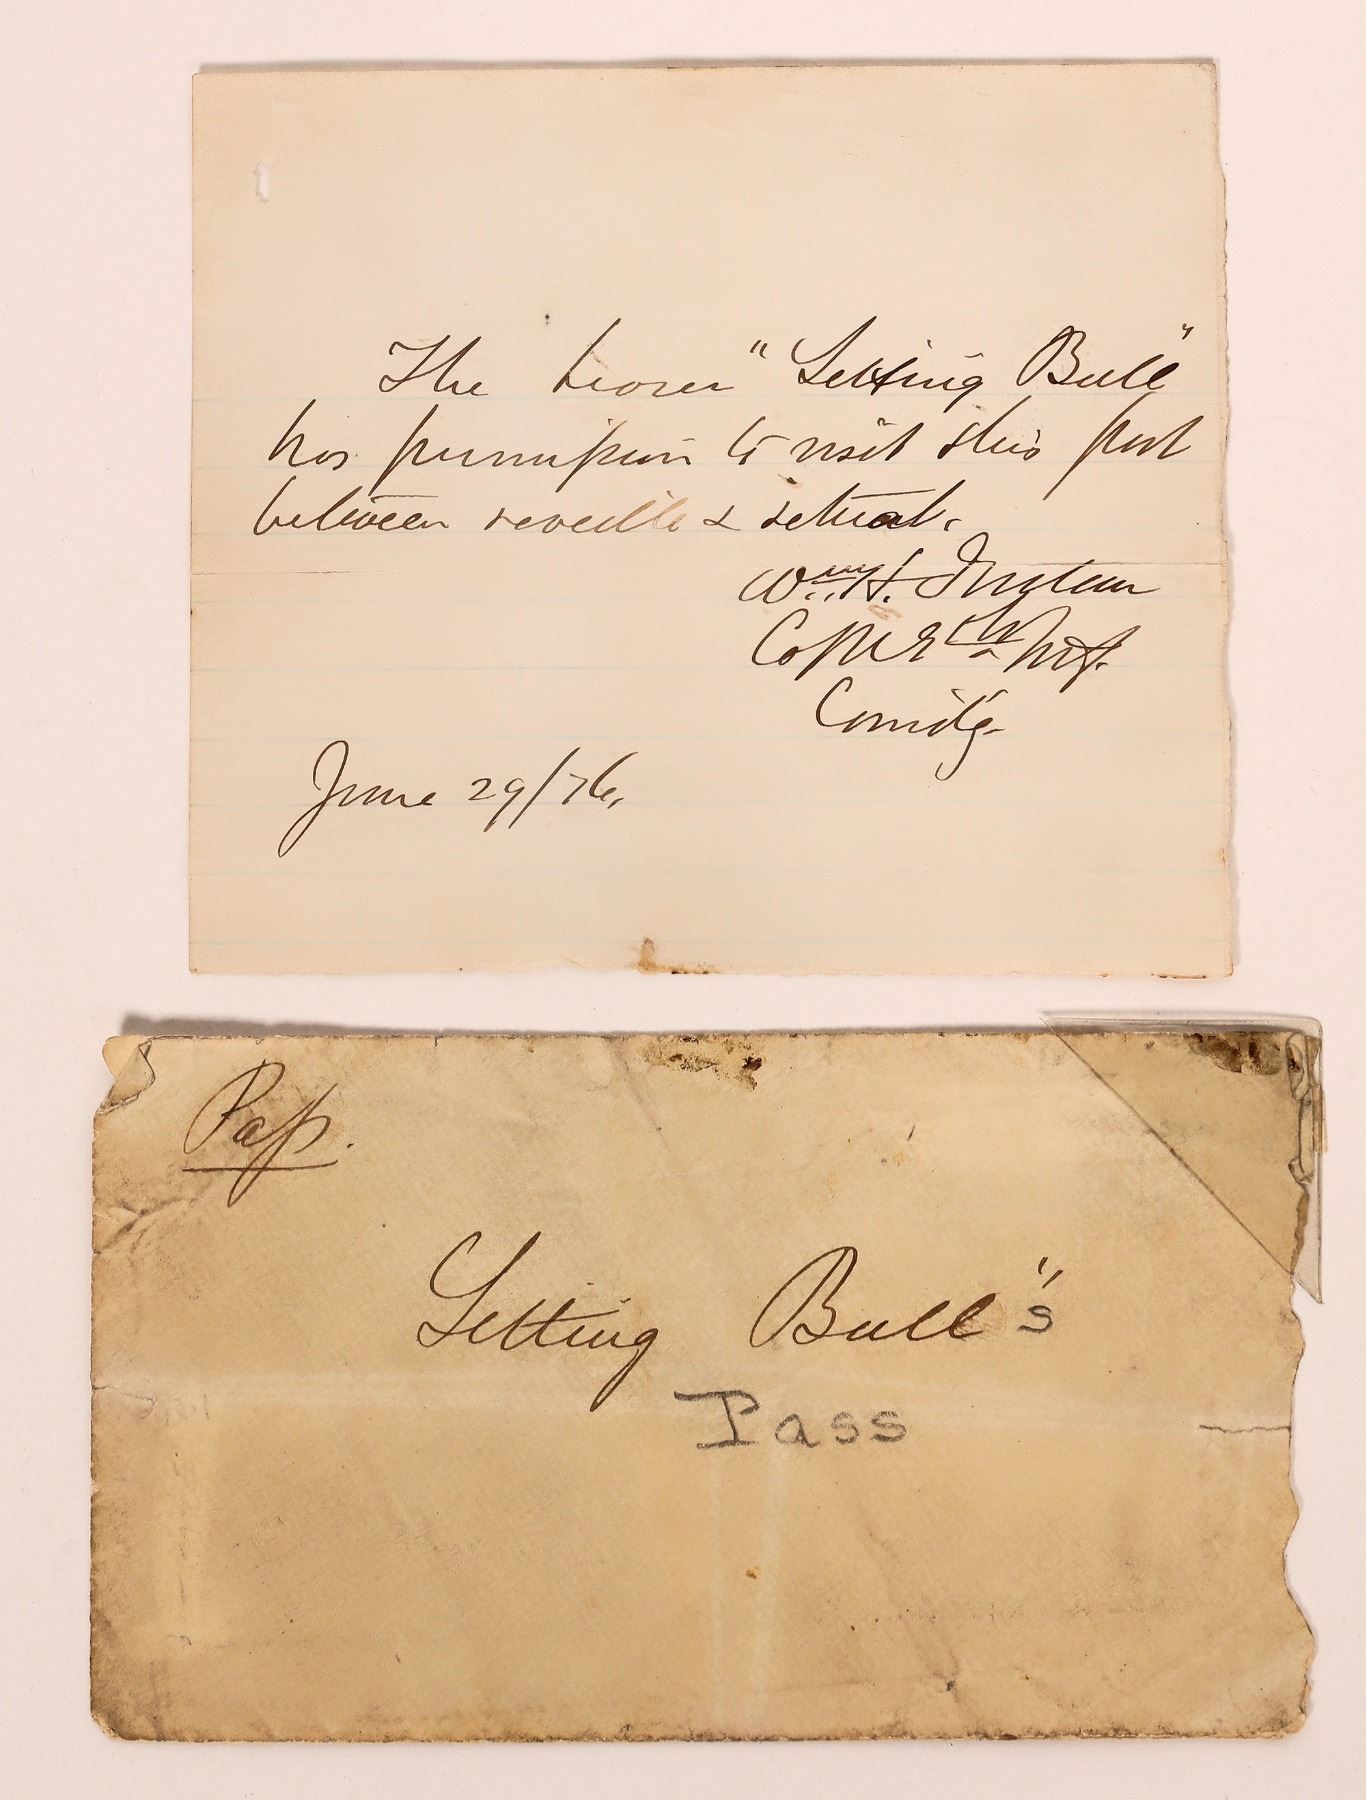 The bearer "Setting Bull"
has permission to visit this post
between reveille & retreat.
Wm. H. 
Inf.
Comd'g.
June 29/76.
Pass.
Setting Bull"s
Pass